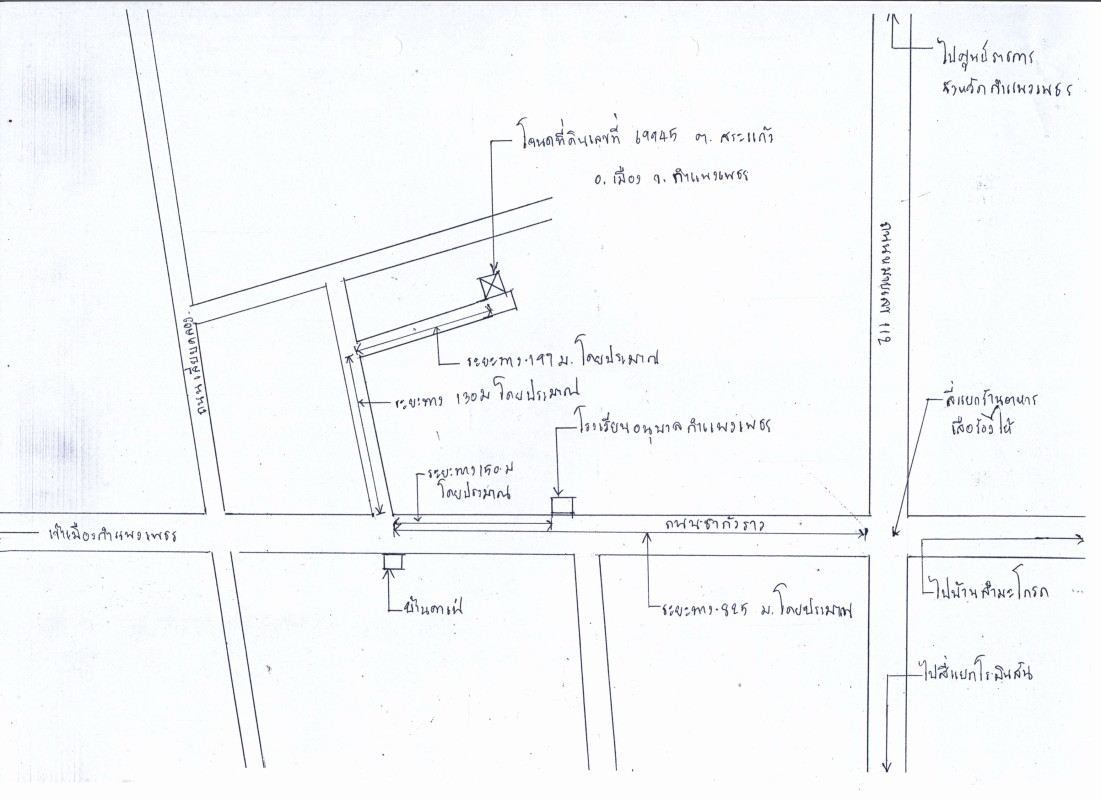 ไปศูนย์ราชการ
จังหวัดกำแพงเพชร
โฉนดที่ดินเลขที่ 69945 ต. สระแก้ว
อ. เมือง จ. กำแพงเพชร
ระยะทาง 197 ม. โดยประมาณ
ระยะทาง 130 ม โดยประมาณ
โรงเรียนอนุบาลกำแพงเพชร
สี่แยกร้านอาหาร
เสือร้องไห้
ระยะทาง 150 ม
โดยประมาณ
เข้าเมืองกำแพงเพชร
ถนนชากังราว
บ้านกาแฟ
ระยะทาง 825 ม. โดยประมาณ
ไปบ้าน
ไปสี่แยก